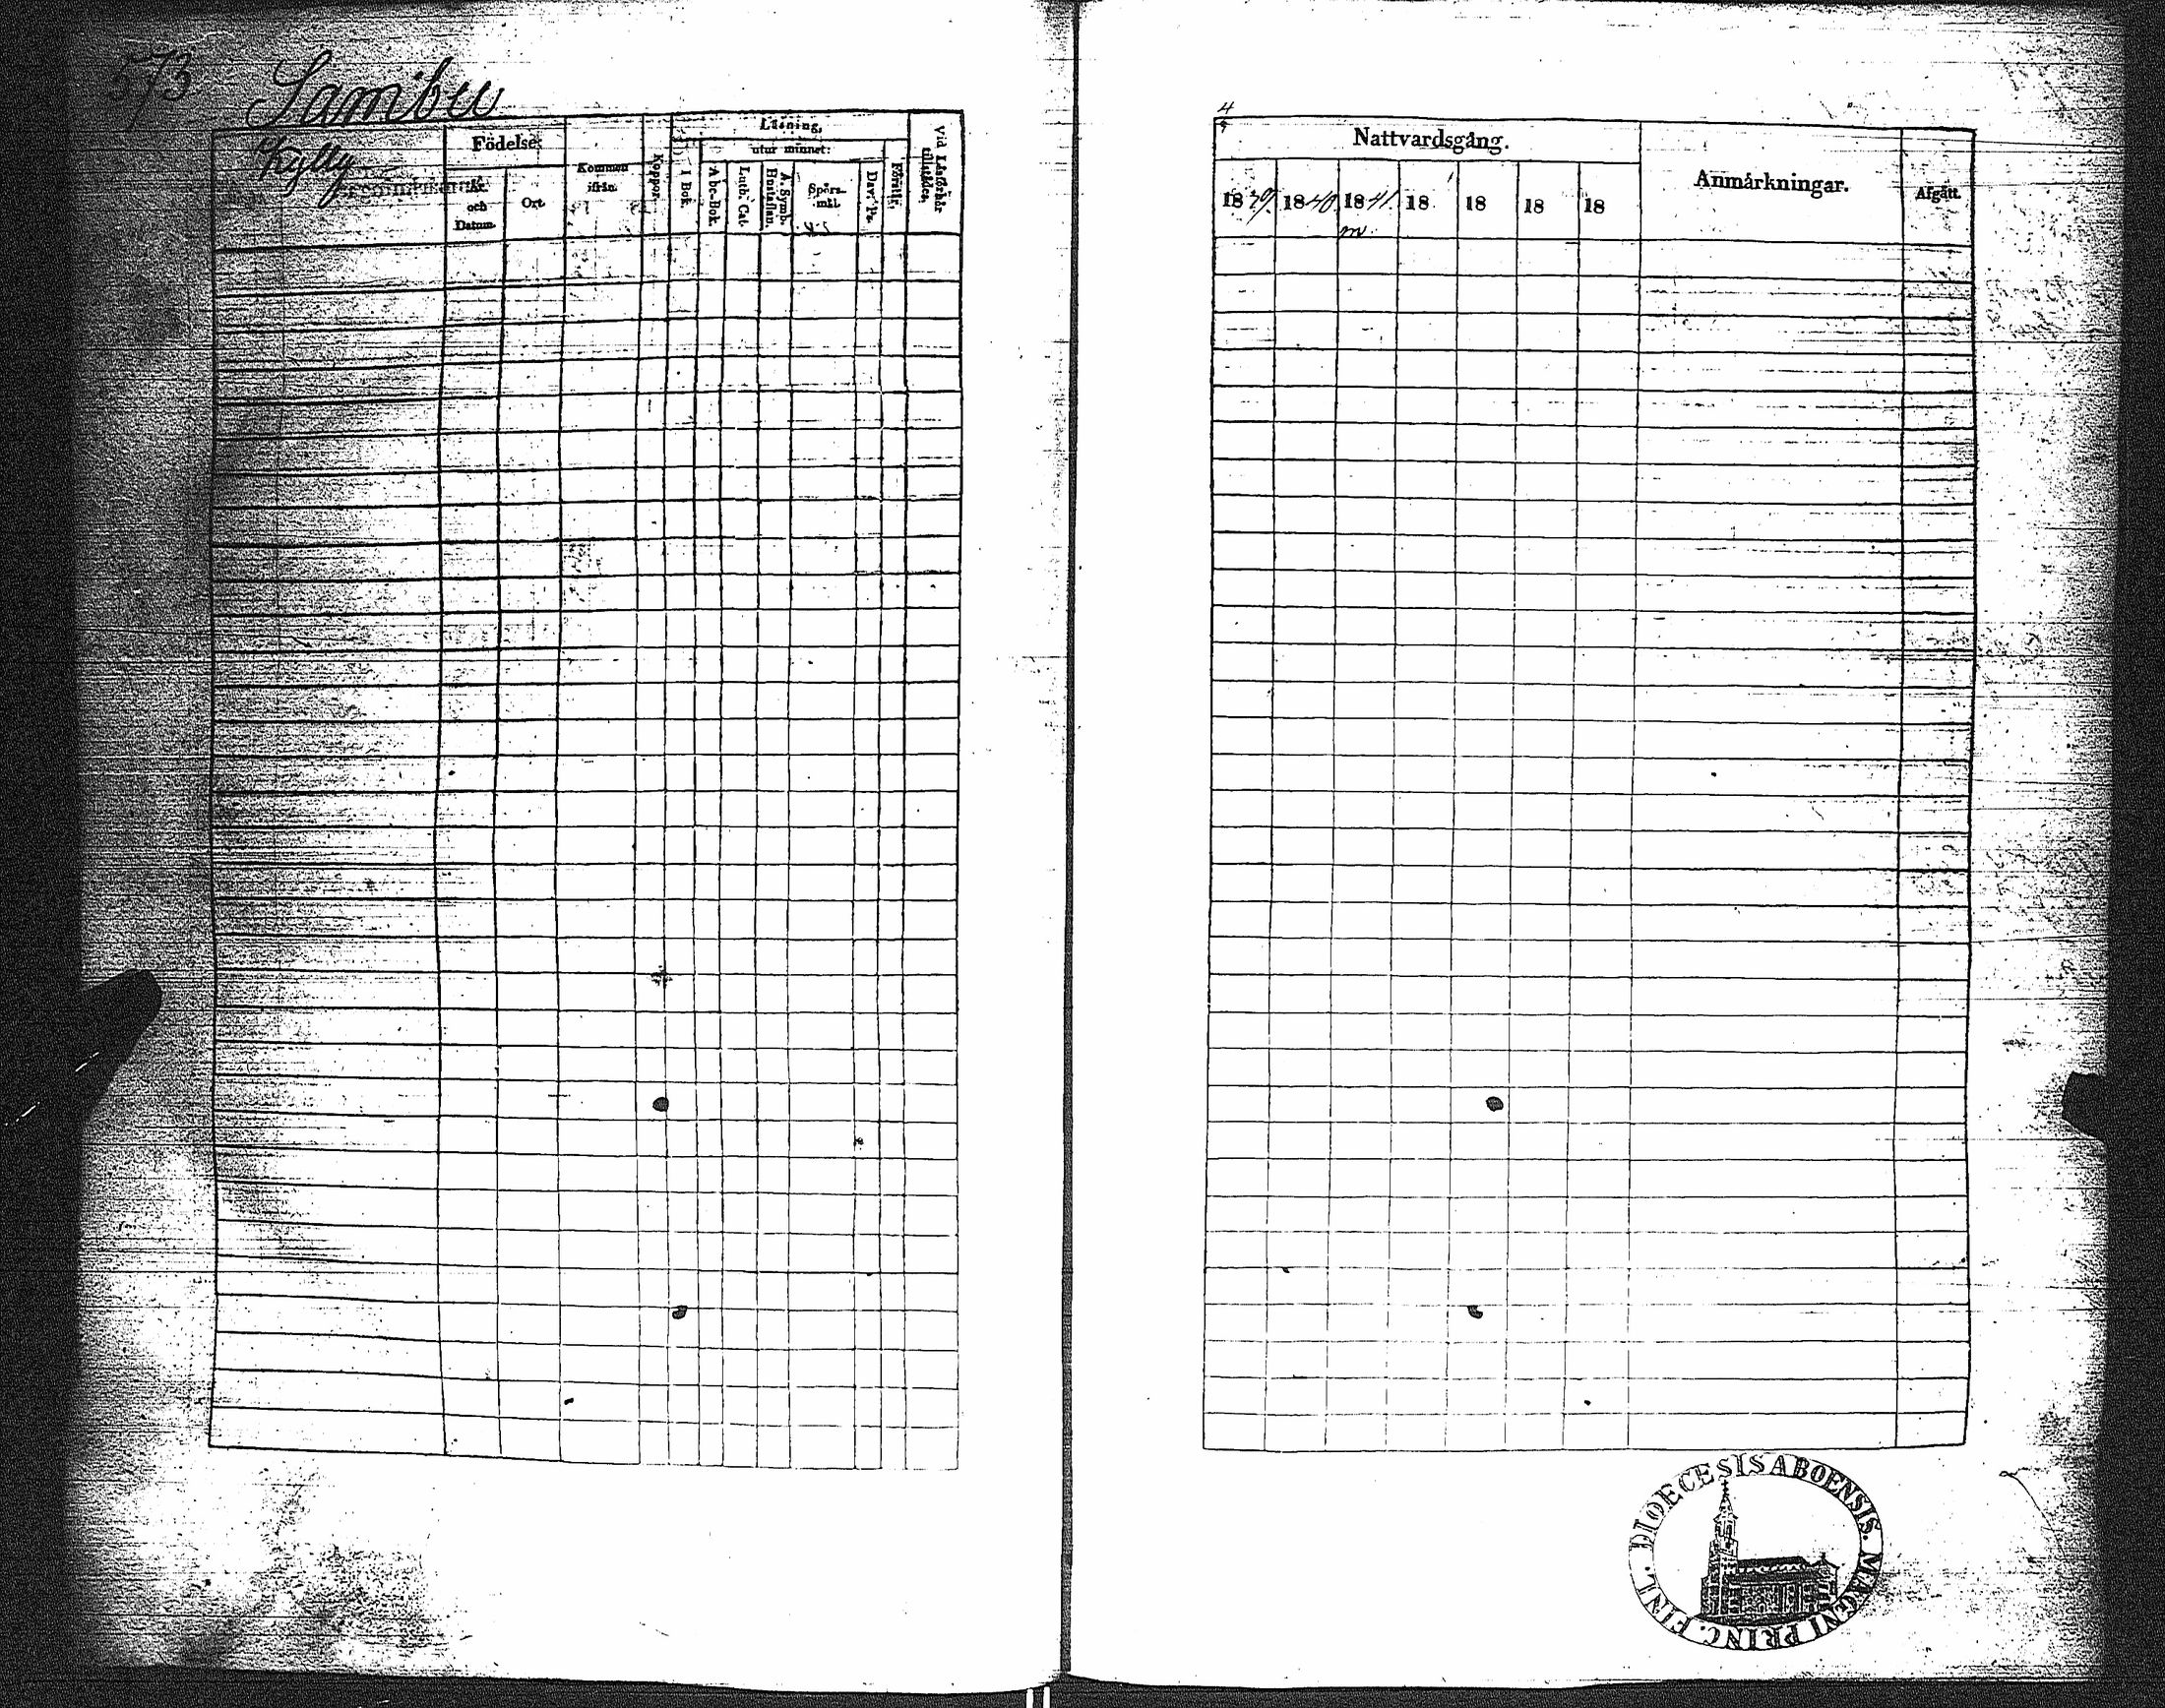 573 Sambu
Kylly
Födelse
År och Datum.
Ort.
Kommen ifrån
Koppor.
Läsning,
utur minnet:
I Bok.
Abc-Bok.
Luth. Cat.
A. Symb. Hustaflan.
Spörsmål.
Dav. Ps.
Förstår,
Vid Läsförhör tillstädes,
4
Nattvardsgång.
1839. 1840. 1841. 18 18 18 18
m.
Anmärkningar.
Afgått.
DIOECESIS ABOENSIS. MAGNI PRINC. FINL.